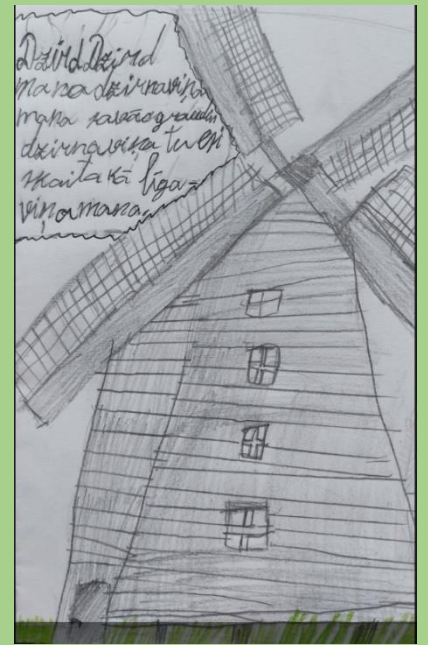 Dzird Dzird
mana dzirnaviņa
mana
dzirnaviņa tu esi
skaita kā līga-
viņa mana